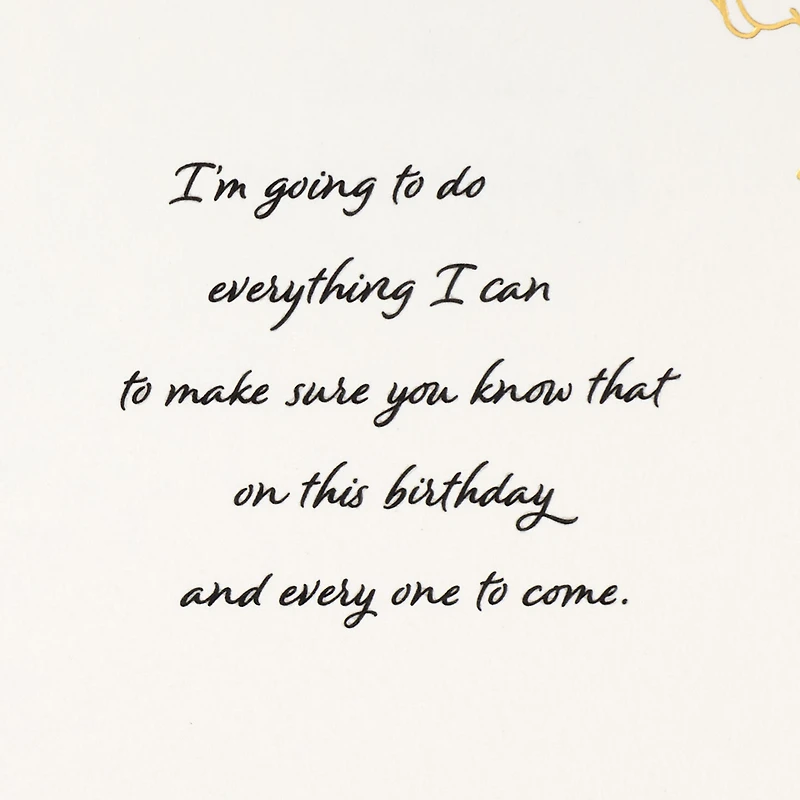 I'm going to do
everything I can
to make sure you know that
on this birthday
and every one to come.